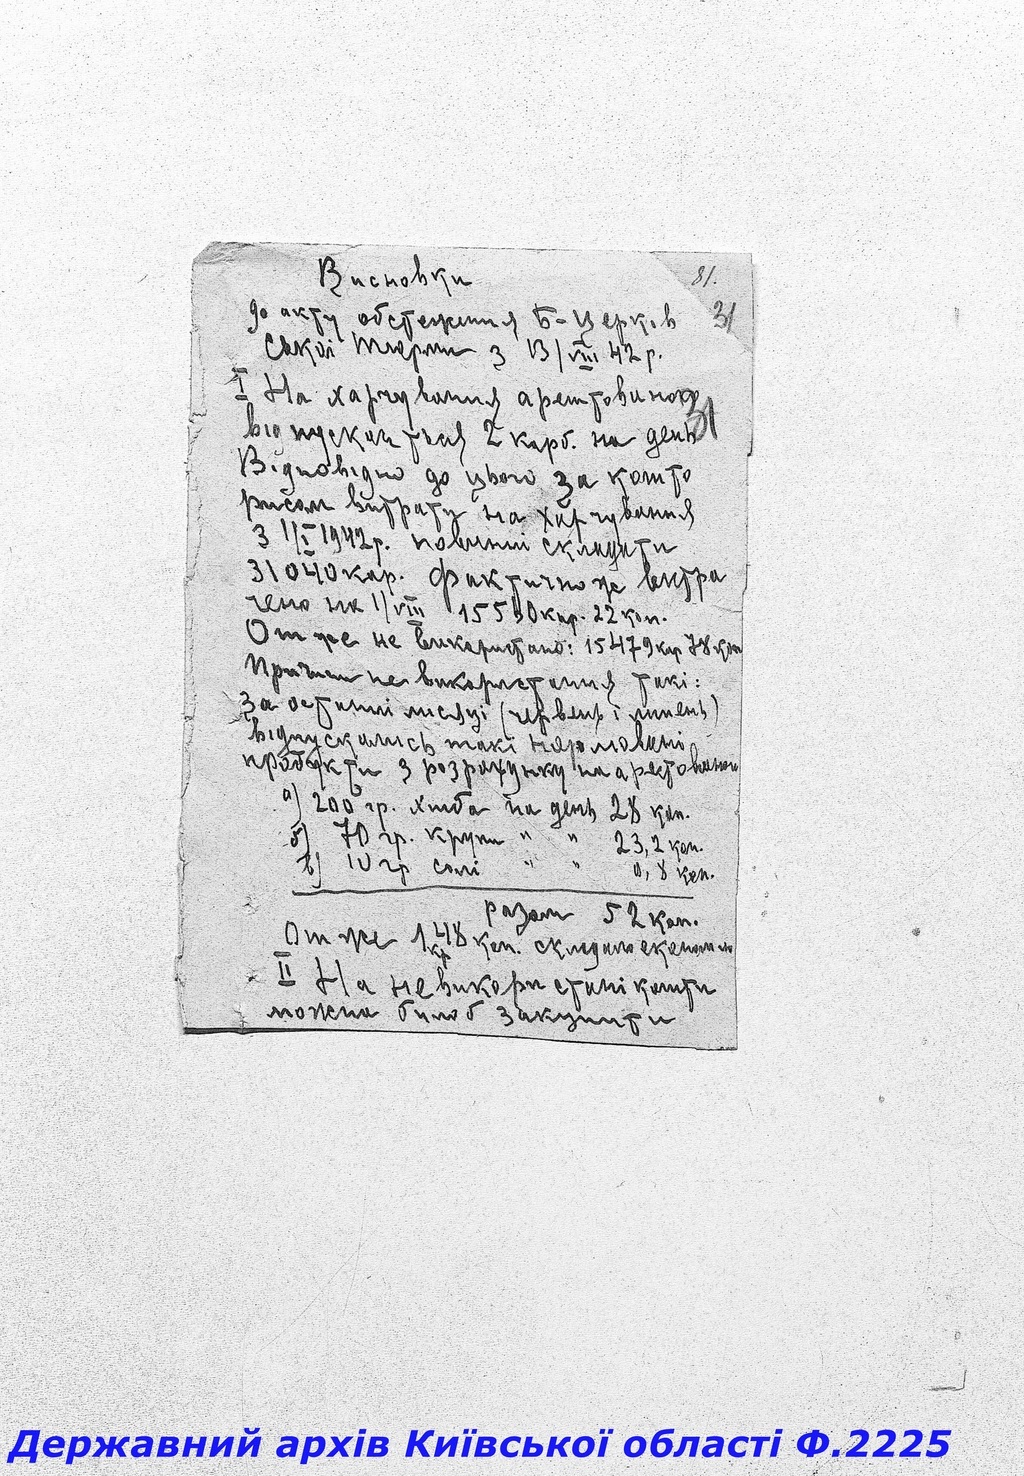 81.
31
Висновки
до акту обстеження Б-Церків
ської тюрми з 13/VIII 42 р.
31
I На харчування арештованого
відпускається 2 карб. на день
Відповідно до цього за кошто
рисом витрату на харчування
з 1/I 1942 р. повинні складати
31040 кар. Фактично же витра
чено на 1/VIII 15560 кар. 22 коп.
От же не використано: 15479 кар 78 коп
Причини не використання такі:
за останні місяці (червень і липень)
відпускались такі нормовані
продукти з розрахунку на арештованого
а) 200 гр. хліба на день 28 коп.
б) 70 гр. крупи " " 23,2 коп.
в) 10 гр солі " " 0,8 коп.
разом 52 коп.
От же 1 кр 48 коп. складало економію
II На невикористані кошти
можна було б закупити
Державний архів Київської області Ф.2225